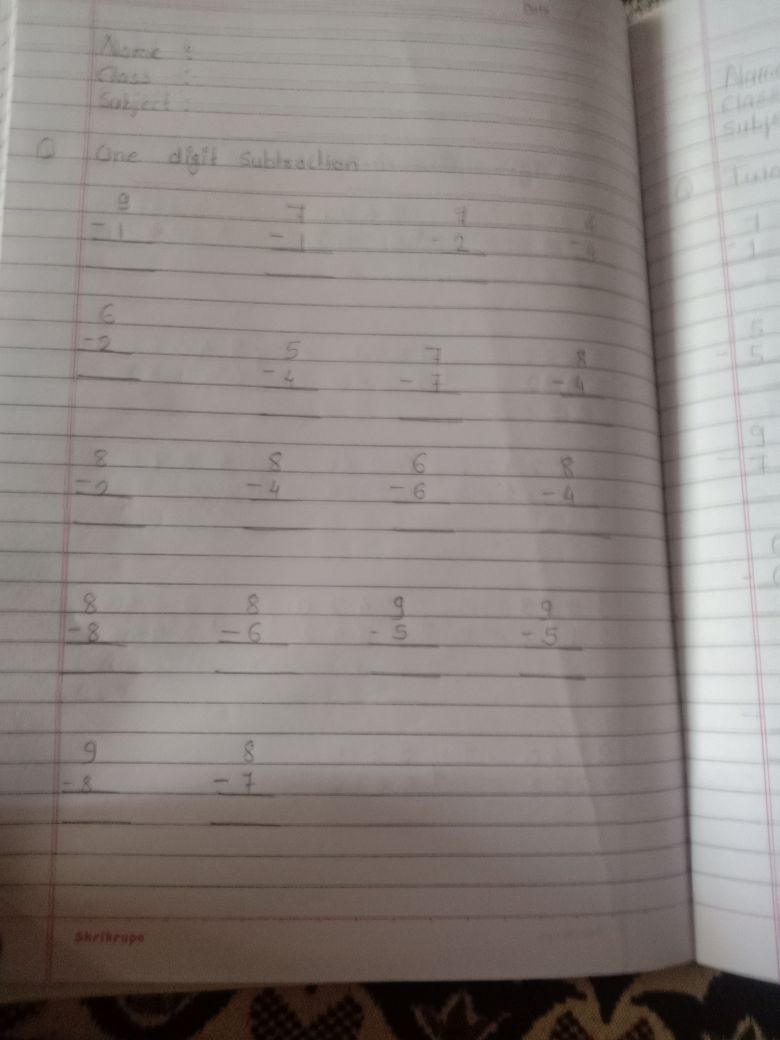 Name :
Class :
Subject :
Q One digit Subtraction
9 7 7
- 1 - 1 - 2 - 4
6
- 2
5 7 8
- 4 - 7 - 4
8 8 6 8
- 2 - 4 - 6 - 4
8 8 9 9
- 8 - 6 - 5 - 5
9 8
- 8 - 7
Shrikrupa
Name
Class
Subje
Q
1
- 1
5
- 5
9
- 7